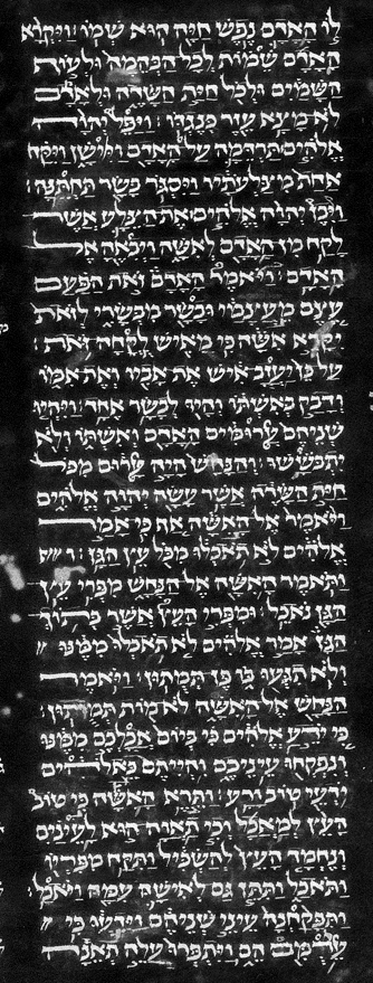 לו האדם נפש חיה הוא שמו׃ ויקרא
האדם שמות לכל הבהמה ולעוף
השמים ולכל חית השדה ולאדם
לא מצא עזר כנגדו׃ ויפל יהוה
אלהים תרדמה על האדם ויישן ויקח
אחת מצלעתיו ויסגר בשר תחתנה׃
ויבן יהוה אלהים את הצלע אשר
לקח מן האדם לאשה ויבאה אל
האדם׃ ויאמר האדם זאת הפעם
עצם מעצמי ובשר מבשרי לזאת
יקרא אשה כי מאיש לקחה זאת׃
על כן יעזב איש את אביו ואת אמו
ודבק באשתו והיו לבשר אחד׃ ויהיו
שניהם ערומים האדם ואשתו ולא
יתבששו׃ והנחש היה ערום מכל
חית השדה אשר עשה יהוה אלהים
ויאמר אל האשה אף כי אמר
אלהים לא תאכלו מכל עץ הגן׃
ותאמר האשה אל הנחש מפרי עץ
הגן נאכל׃ ומפרי העץ אשר בתוך
הגן אמר אלהים לא תאכלו ממנו
ולא תגעו בו פן תמתון׃ ויאמר
הנחש אל האשה לא מות תמתון׃
כי ידע אלהים כי ביום אכלכם ממנו
ונפקחו עיניכם והייתם כאלהים
ידעי טוב ורע׃ ותרא האשה כי טוב
העץ למאכל וכי תאוה הוא לעינים
ונחמד העץ להשכיל ותקח מפריו
ותאכל ותתן גם לאישה עמה ויאכל׃
ותפקחנה עיני שניהם וידעו כי
עירמם הם ויתפרו עלה תאנה